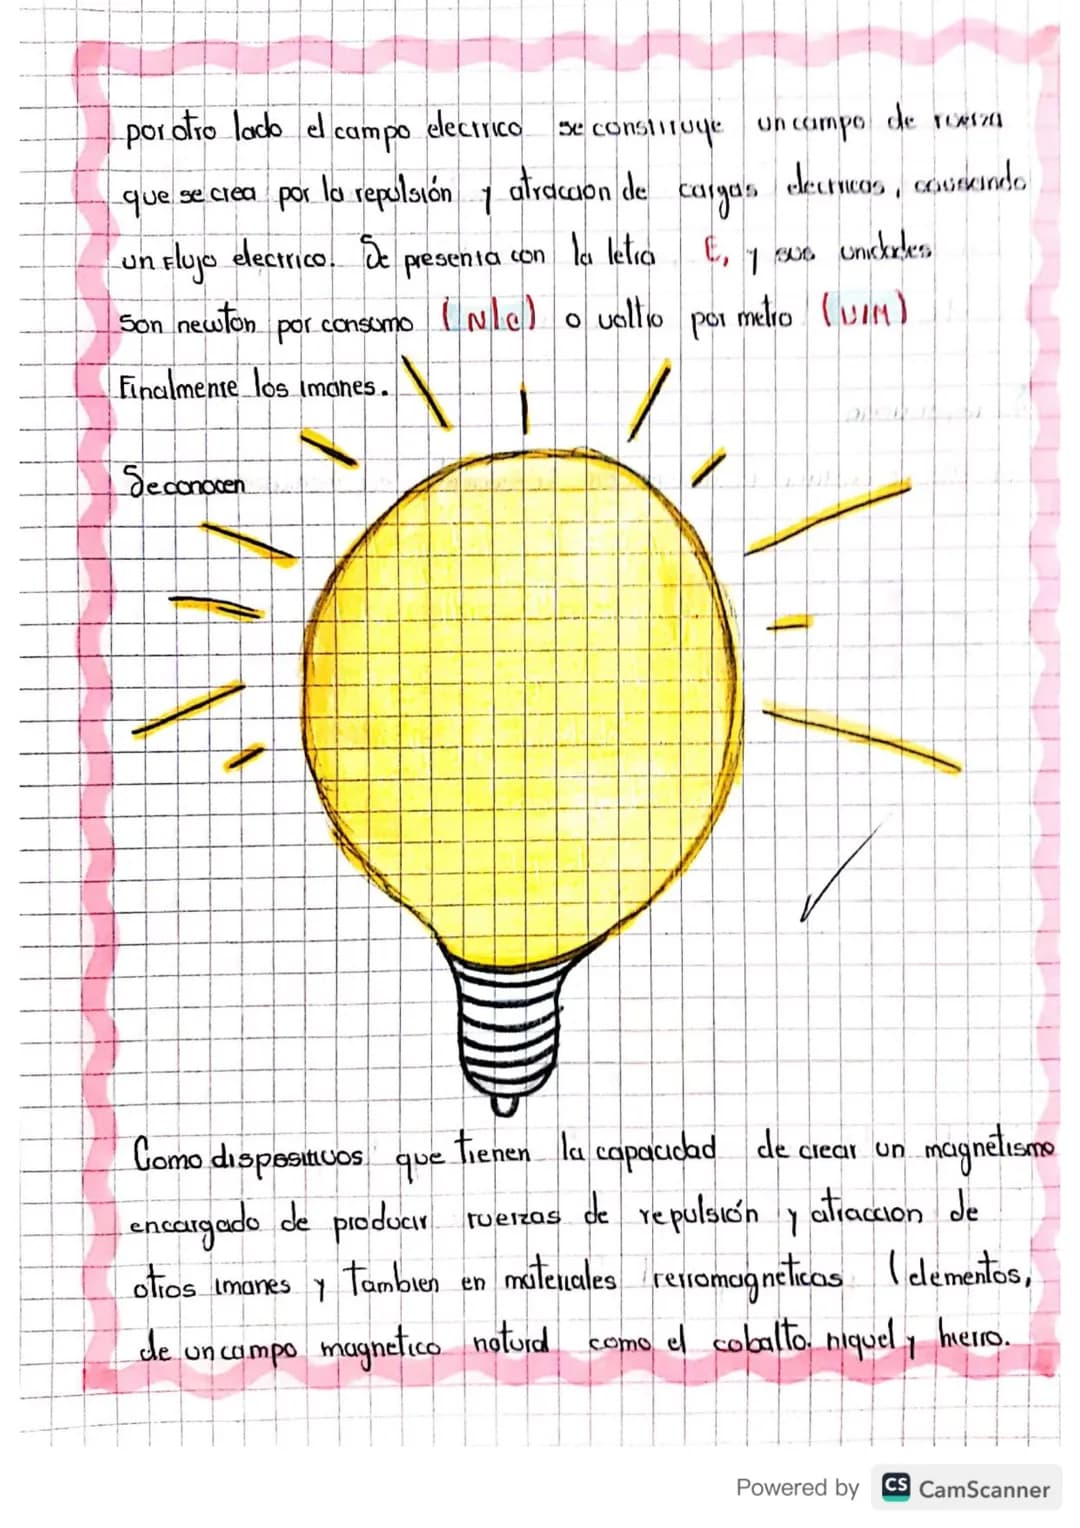 por otro lado el campo electrico se constituye un campo de fuerza
que se crea por la repulsión y atraccion de cargas electricas, causando
un flujo electrico. Se presenta con la letra E, y sus unidades
son newton por consumo (N/c) o voltio por metro (V/M)
Finalmente los imanes.
Se conocen
Como dispositivos que tienen la capacidad de crear un magnétismo
encargado de producir fuerzas de repulsión y atraccion de
otros imanes y tambien en materiales ferromagneticos (elementos,
de un campo magnetico natural como el cobalto. niquel y hierro.
Powered by CS CamScanner